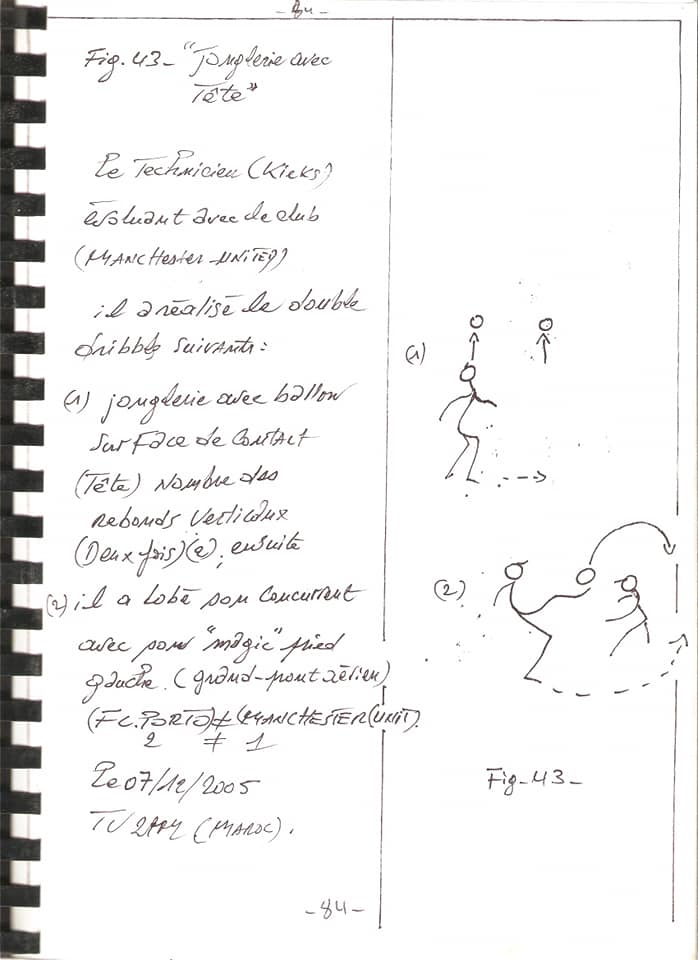 - 84 -
Fig. 43 - "Jonglerie avec
Tête"
Le Technicien (Kieks)
évoluant avec le club
(MANCHester-UNITED)
il a réalisé le double
dribble suivants :
(1) jonglerie avec ballon
surface de contact
(Tête) Nombre des
rebonds verticaux
(Deux fois) (2), ensuite
(2) il a lobé son concurrent
avec son "magic" pied
gauche. (grand-pont aérien)
(FC.PORTO) ≠ (MANCHESTER(UNIT).
2 ≠ 1
Le 07/12/2005
TV 2M (MAROC).
(1)
(2)
Fig-43-
- 84 -